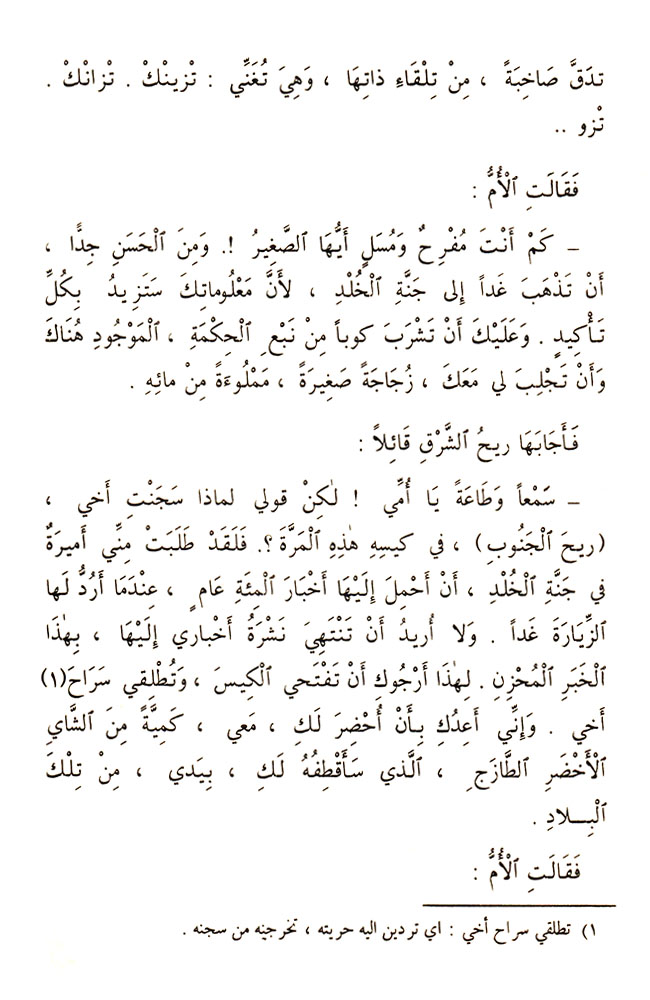 تدَقَّ صَاخِبَةً ، مِنْ تِلْقَاءِ ذاتِهَا ، وَهِيَ تُغَنِّي : تْزينْكْ . تْزانْكْ .
تْزو ..
فَقَالَتِ ٱلْأُمُّ :
ـ كَمْ أَنْتَ مُفْرِحٌ وَمُسَلٍ أَيُّهَا ٱلصَّغِيرُ !. وَمِنَ ٱلْحَسَنِ جِدًّا ،
أَنْ تَذْهَبَ غَداً إلى جَنَّةِ ٱلْخُلْدِ ، لأَنَّ مَعْلُوماتِكَ سَتَزِيدُ بِكُلِّ
تَأْكِيدٍ . وَعَلَيْكَ أَنْ تَشْرَبَ كوباً مِنْ نَبْعِ ٱلْحِكْمَةِ ، ٱلْمَوْجُودِ هُنَاكَ
وَأَنْ تَجْلِبَ لي مَعَكَ ، زُجَاجَةً صَغِيرَةً ، مَمْلُوءَةً مِنْ مائِهِ .
فَأَجَابَهَا ريحُ ٱلشَّرْقِ قَائِلاً :
ـ سَمْعاً وَطَاعَةً يَا أُمِّي ! لكِنْ قولي لماذا سَجَنْتِ أَخي ،
(ريحَ ٱلْجَنُوبِ) ، في كيسِهِ هٰذِهِ ٱلْمَرَّةَ ؟. فَلَقَدْ طَلَبَتْ مِنِّي أَميرَةٌ
في جَنَّةِ ٱلْخُلْدِ ، أَنْ أَحْمِلَ إلَيْهَا أَخْبَارَ ٱلْمِئَةِ عَامٍ ، عِنْدَمَا أَرُدُّ لَها
ٱلزِّيَارَةَ غَداً . وَلا أُريدُ أَنْ تَنْتَهِيَ نَشْرَةُ أَخْباري إلَيْهَا ، بِهٰذَا
ٱلْخَبَرِ ٱلْمُحْزِنِ . لِهٰذَا أَرْجُوكِ أَنْ تَفْتَحي ٱلْكِيسَ ، وَتُطْلِقي سَرَاحَ(١)
أَخي . وَإنِّي أَعِدُكِ بِأَنْ أُحْضِرَ لَكِ ، مَعي ، كَمِيَّةً مِنَ ٱلشَّايِ
ٱلْأَخْضَرِ ٱلطَّازَجِ ، ٱلَّذي سَأَقْطِفُهُ لَكِ ، بِيَدي ، مِنْ تِلْكَ
ٱلْبِـلَادِ .
فَقَالَتِ ٱلْأُمُّ :
١) تطلقي سراح أخي : اي تردين اليه حريته ، تخرجينه من سجنه .